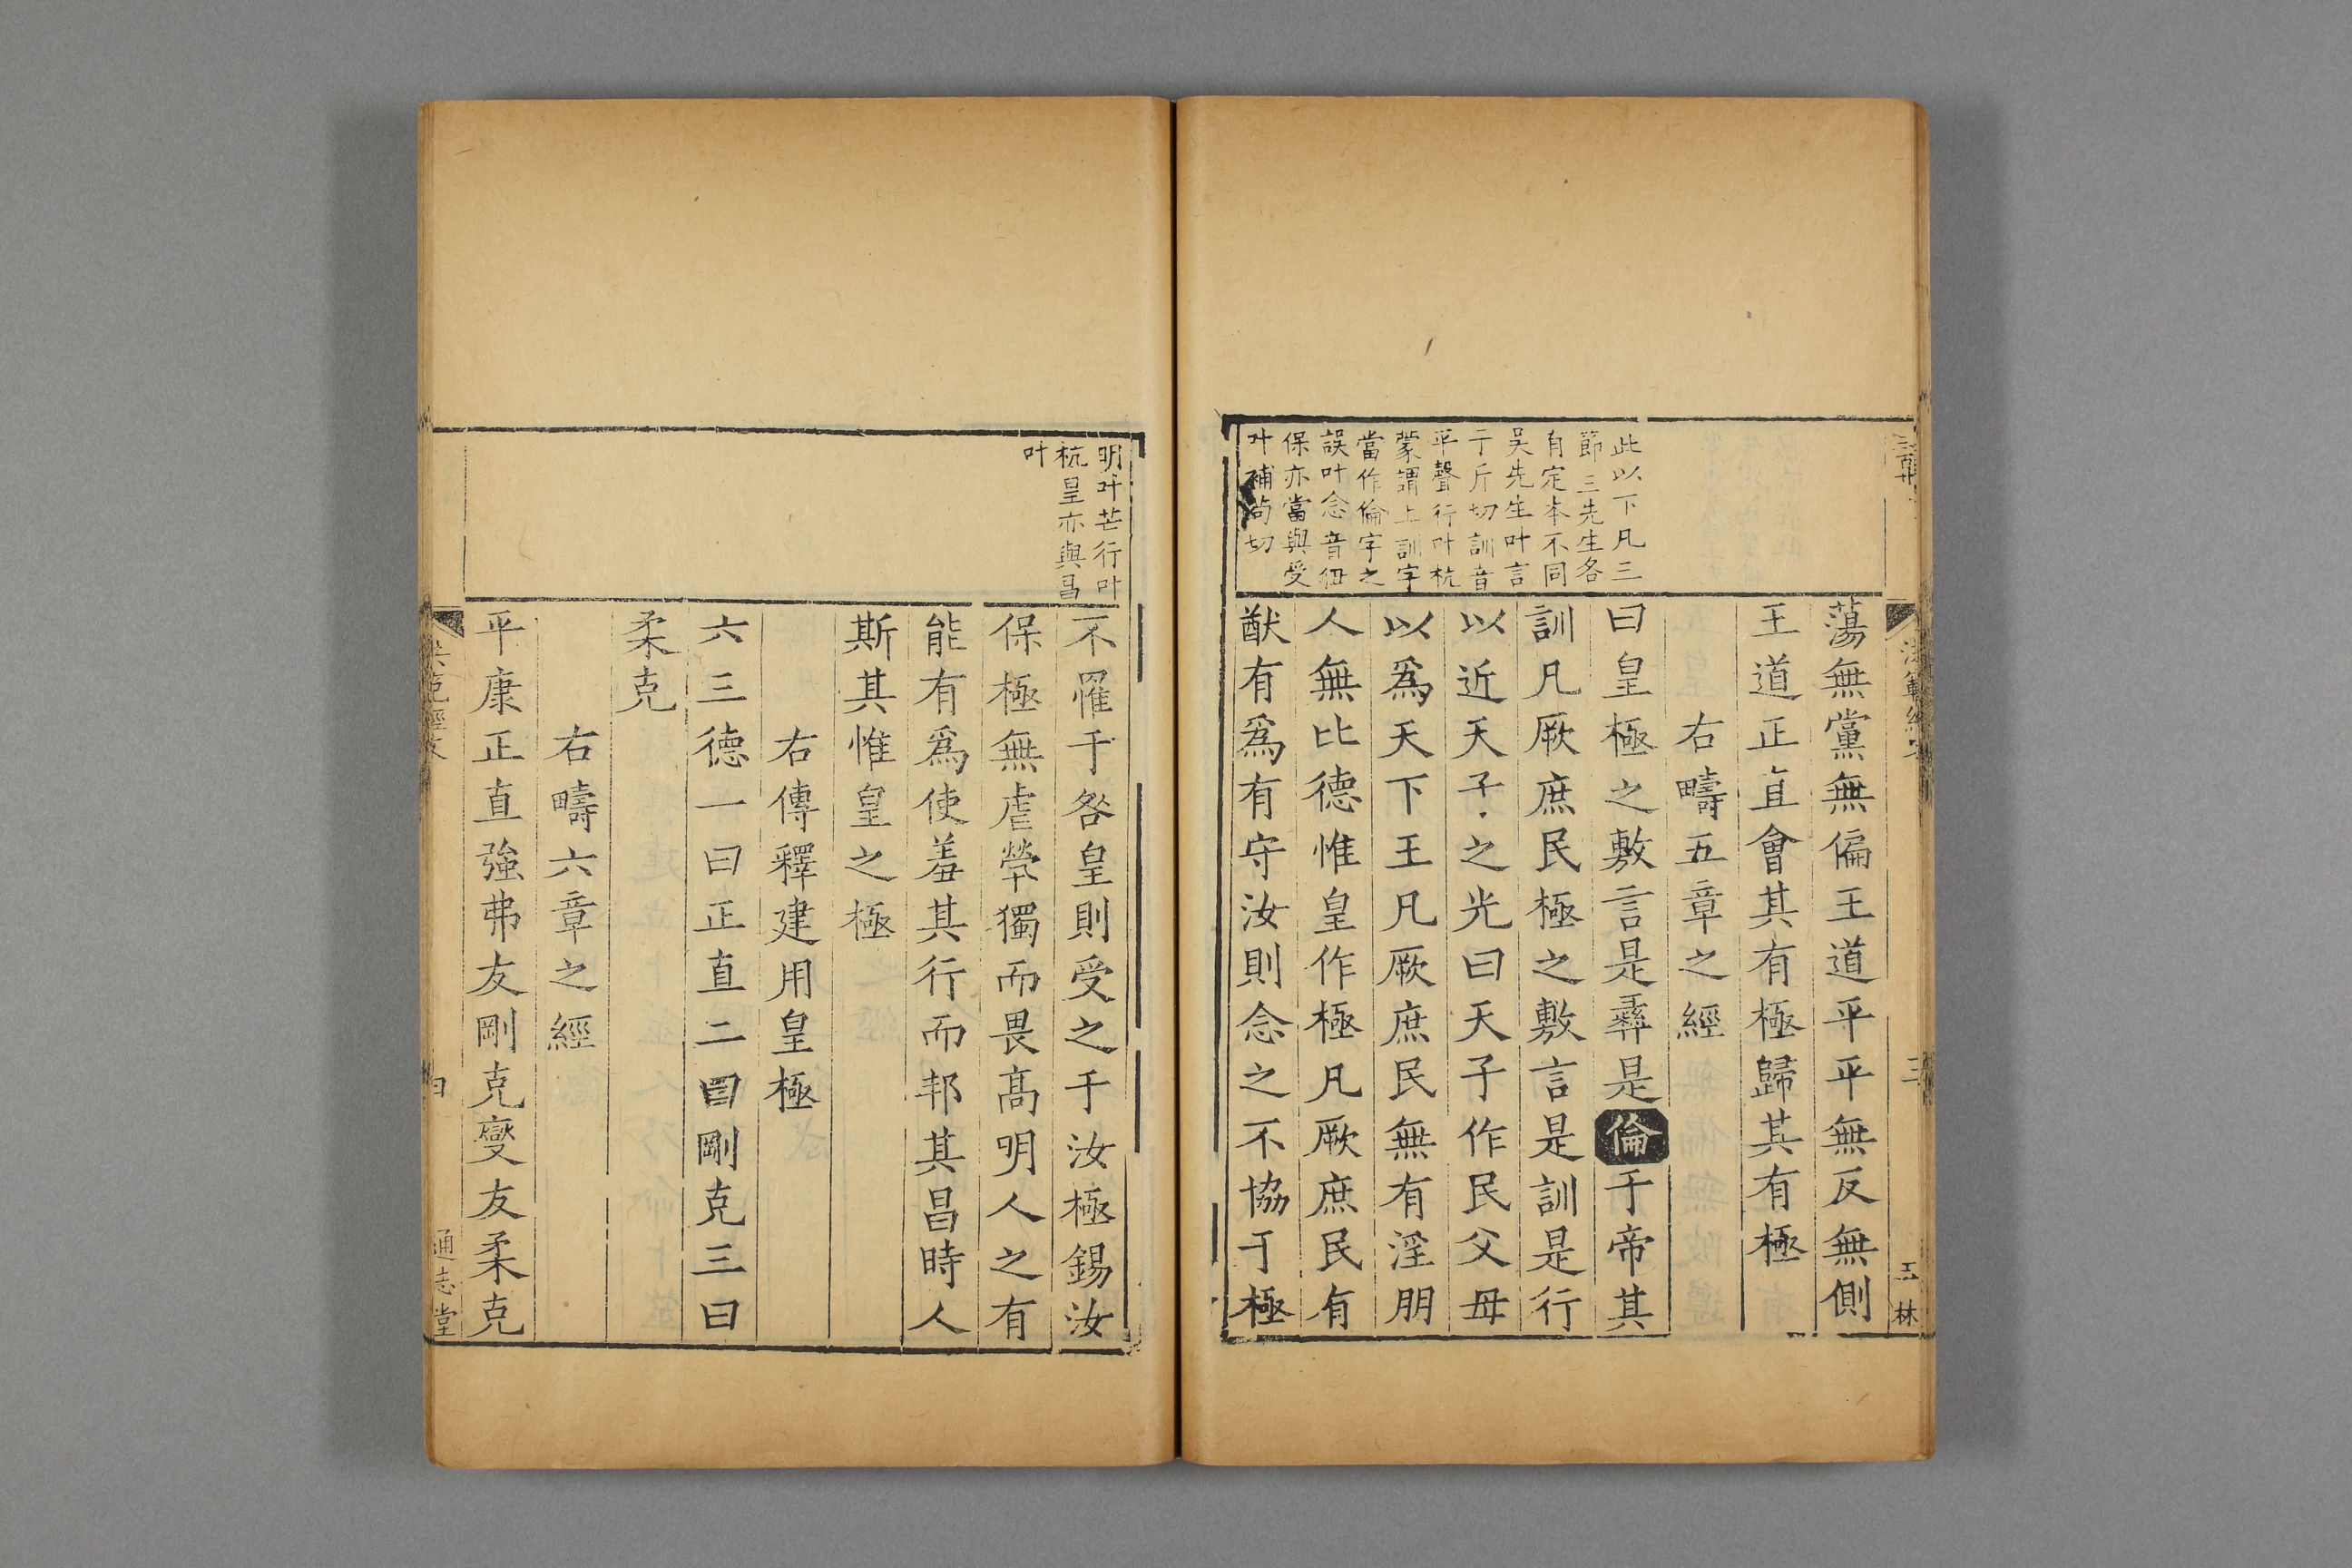 蕩無黨無偏王道平平無反無側
王道正直會其有極歸其有極
右疇五章之經
此以下凡三
節三先生各
自定本不同
吴先生叶言
于斤切訓音
平聲行叶杭
蒙謂上訓字
當作倫字之
誤叶念音
保亦當與受
叶補苟切
曰皇極之敷言是彞是倫于帝其
訓凡厥庶民極之敷言是訓是行
以近天子之光曰天子作民父母
以爲天下王凡厥庶民無有淫朋
人無比德惟皇作極凡厥庶民有
猷有爲有守汝則念之不協于極
明叶芒行叶
杭皇亦與昌
叶
不罹于咎皇則受之于汝極錫汝
保極無虐㷀獨而畏髙明人之有
能有爲使羞其行而邦其昌時人
斯其惟皇之極
右傳釋建用皇極
六三德一曰正直二曰剛克三曰
柔克
右疇六章之經
平康正直強弗友剛克變友柔克
通志堂